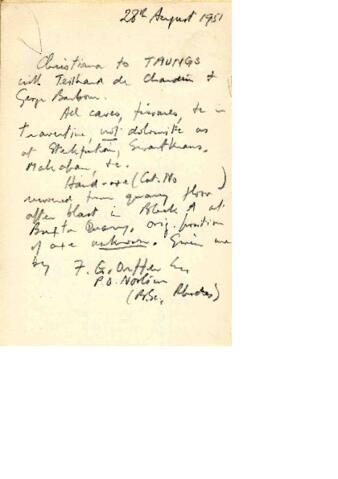 28th August 1951
Christiana to TAUNGS
with Teilhard de Chardin &
George Barbour.
All caves, fissures, etc in
Travertine, not dolomite as
at Sterkfontein, Swartkrans,
Makapan, etc.
Hand-axe (Cat. No )
removed from quarry floor
after blast in Block A at
Buxton Quarry. orig. position
of axe unknown. Given me
by F. G. Esq
P.O. Norlim
(B.Sc, Rhodes)